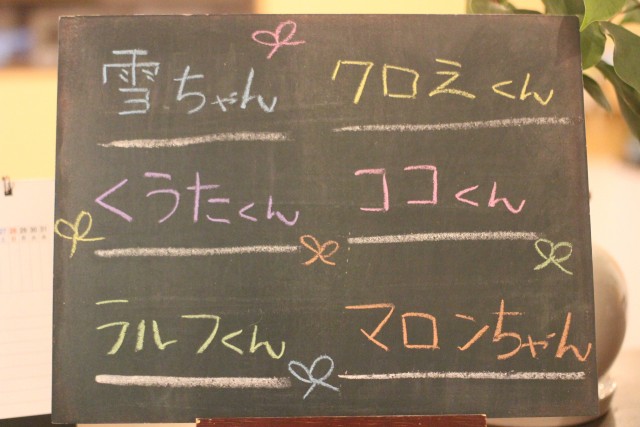 雪ちゃん
クロミくん
くうたくん
ココくん
ラルフくん
マロンちゃん